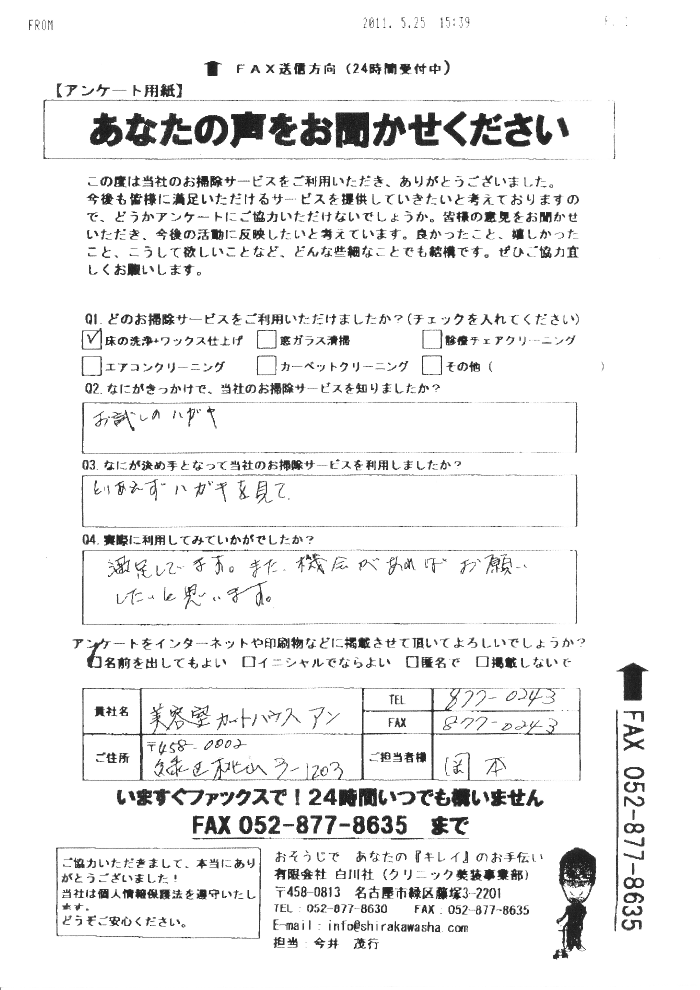 FROM 2011. 5.25 15:39
FAX送信方向（24時間受付中）
【アンケート用紙】
あなたの声をお聞かせください
この度は当社のお掃除サービスをご利用いただき、ありがとうございました。
今後も皆様に満足いただけるサービスを提供していきたいと考えておりますの
で、どうかアンケートにご協力いただけないでしょうか。皆様の意見をお聞かせ
いただき、今後の活動に反映したいと考えています。良かったこと、嬉しかった
こと、こうして欲しいことなど、どんな些細なことでも結構です。ぜひご協力宜
しくお願いします。
Q1. どのお掃除サービスをご利用いただけましたか？(チェックを入れてください)
床の洗浄+ワックス仕上げ 窓ガラス清掃 診療チェアクリーニング
エアコンクリーニング カーペットクリーニング その他（ ）
Q2. なにがきっかけで、当社のお掃除サービスを知りましたか？
お試しのハガキ
Q3. なにが決め手となって当社のお掃除サービスを利用しましたか？
とりあえずハガキを見て
Q4. 実際に利用してみていかがでしたか？
満足してます。また、機会があればお願い
したいと思います。
アンケートをインターネットや印刷物などに掲載させて頂いてよろしいでしょうか？
名前を出してもよい □イニシャルでならよい □匿名で □掲載しないで
貴社名 美容室カットハウス アン TEL 877-0243
FAX 877-0243
ご住所 〒458-0002
緑区桃山3-1203 ご担当者様 岡本
いますぐファックスで！24時間いつでも構いません
FAX 052-877-8635 まで
ご協力いただきまして、本当にあり
がとうございました！
当社は個人情報保護法を遵守いたし
ます。
どうぞご安心ください。
おそうじで あなたの『キレイ』のお手伝い
有限会社 白川社（クリニック美装事業部）
〒458-0813 名古屋市緑区藤塚3-2201
TEL：052-877-8630 FAX：052-877-8635
E-mail：info@shirakawasha.com
担当：今井 茂行
FAX 052-877-8635